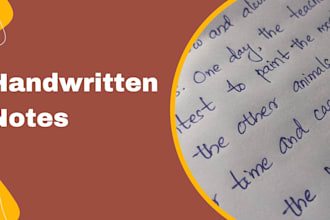 Handwritten
Notes
w and alw
. One day, the teac
test to paint the mo
the other animals
time and ca
the